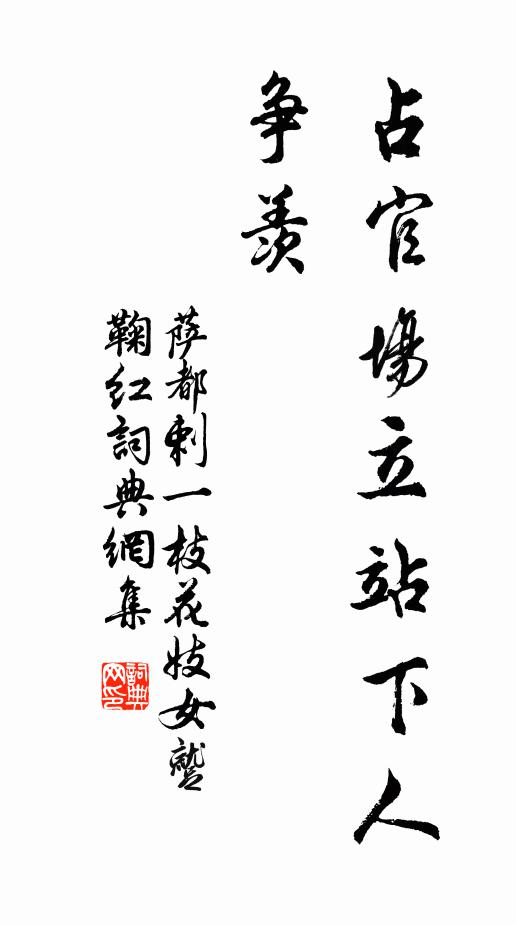 占官場立站下人
争羨
萨都刺一枝花妓女蹴
鞠红詞典網集
詞典
网印